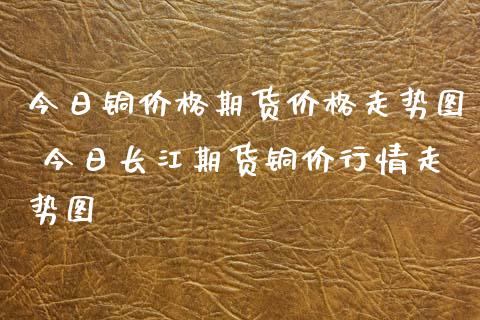 今日铜价格期货价格走势图
今日长江期货铜价行情走
势图